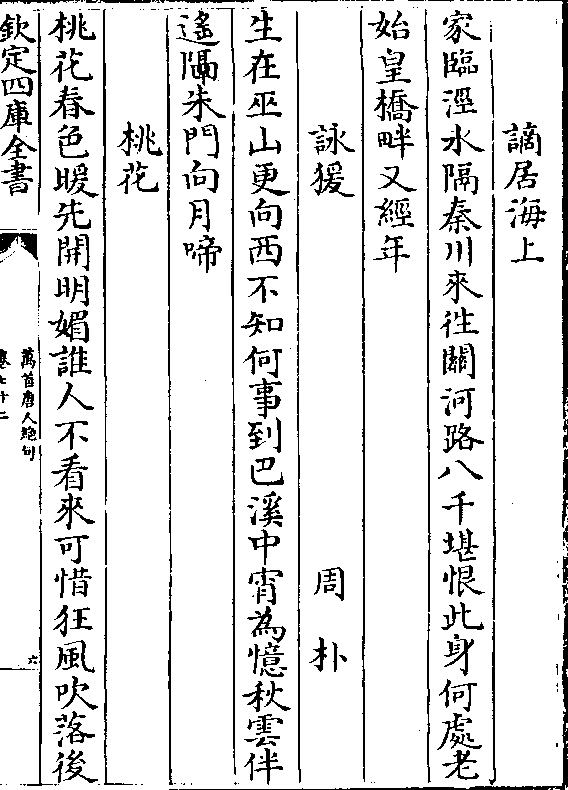 謫居海上
家臨涇水隔秦川來徃關河路八千堪恨此身何處老
始皇橋畔又經年
詠猨　周朴
生在巫山更向西不知何事到巴溪中宵為憶秋雲伴
遙隔朱門向月啼
桃花
桃花春色暖先開明媚誰人不看來可惜狂風吹落後
欽定四庫全書
萬首唐人絶句
卷七十二
六